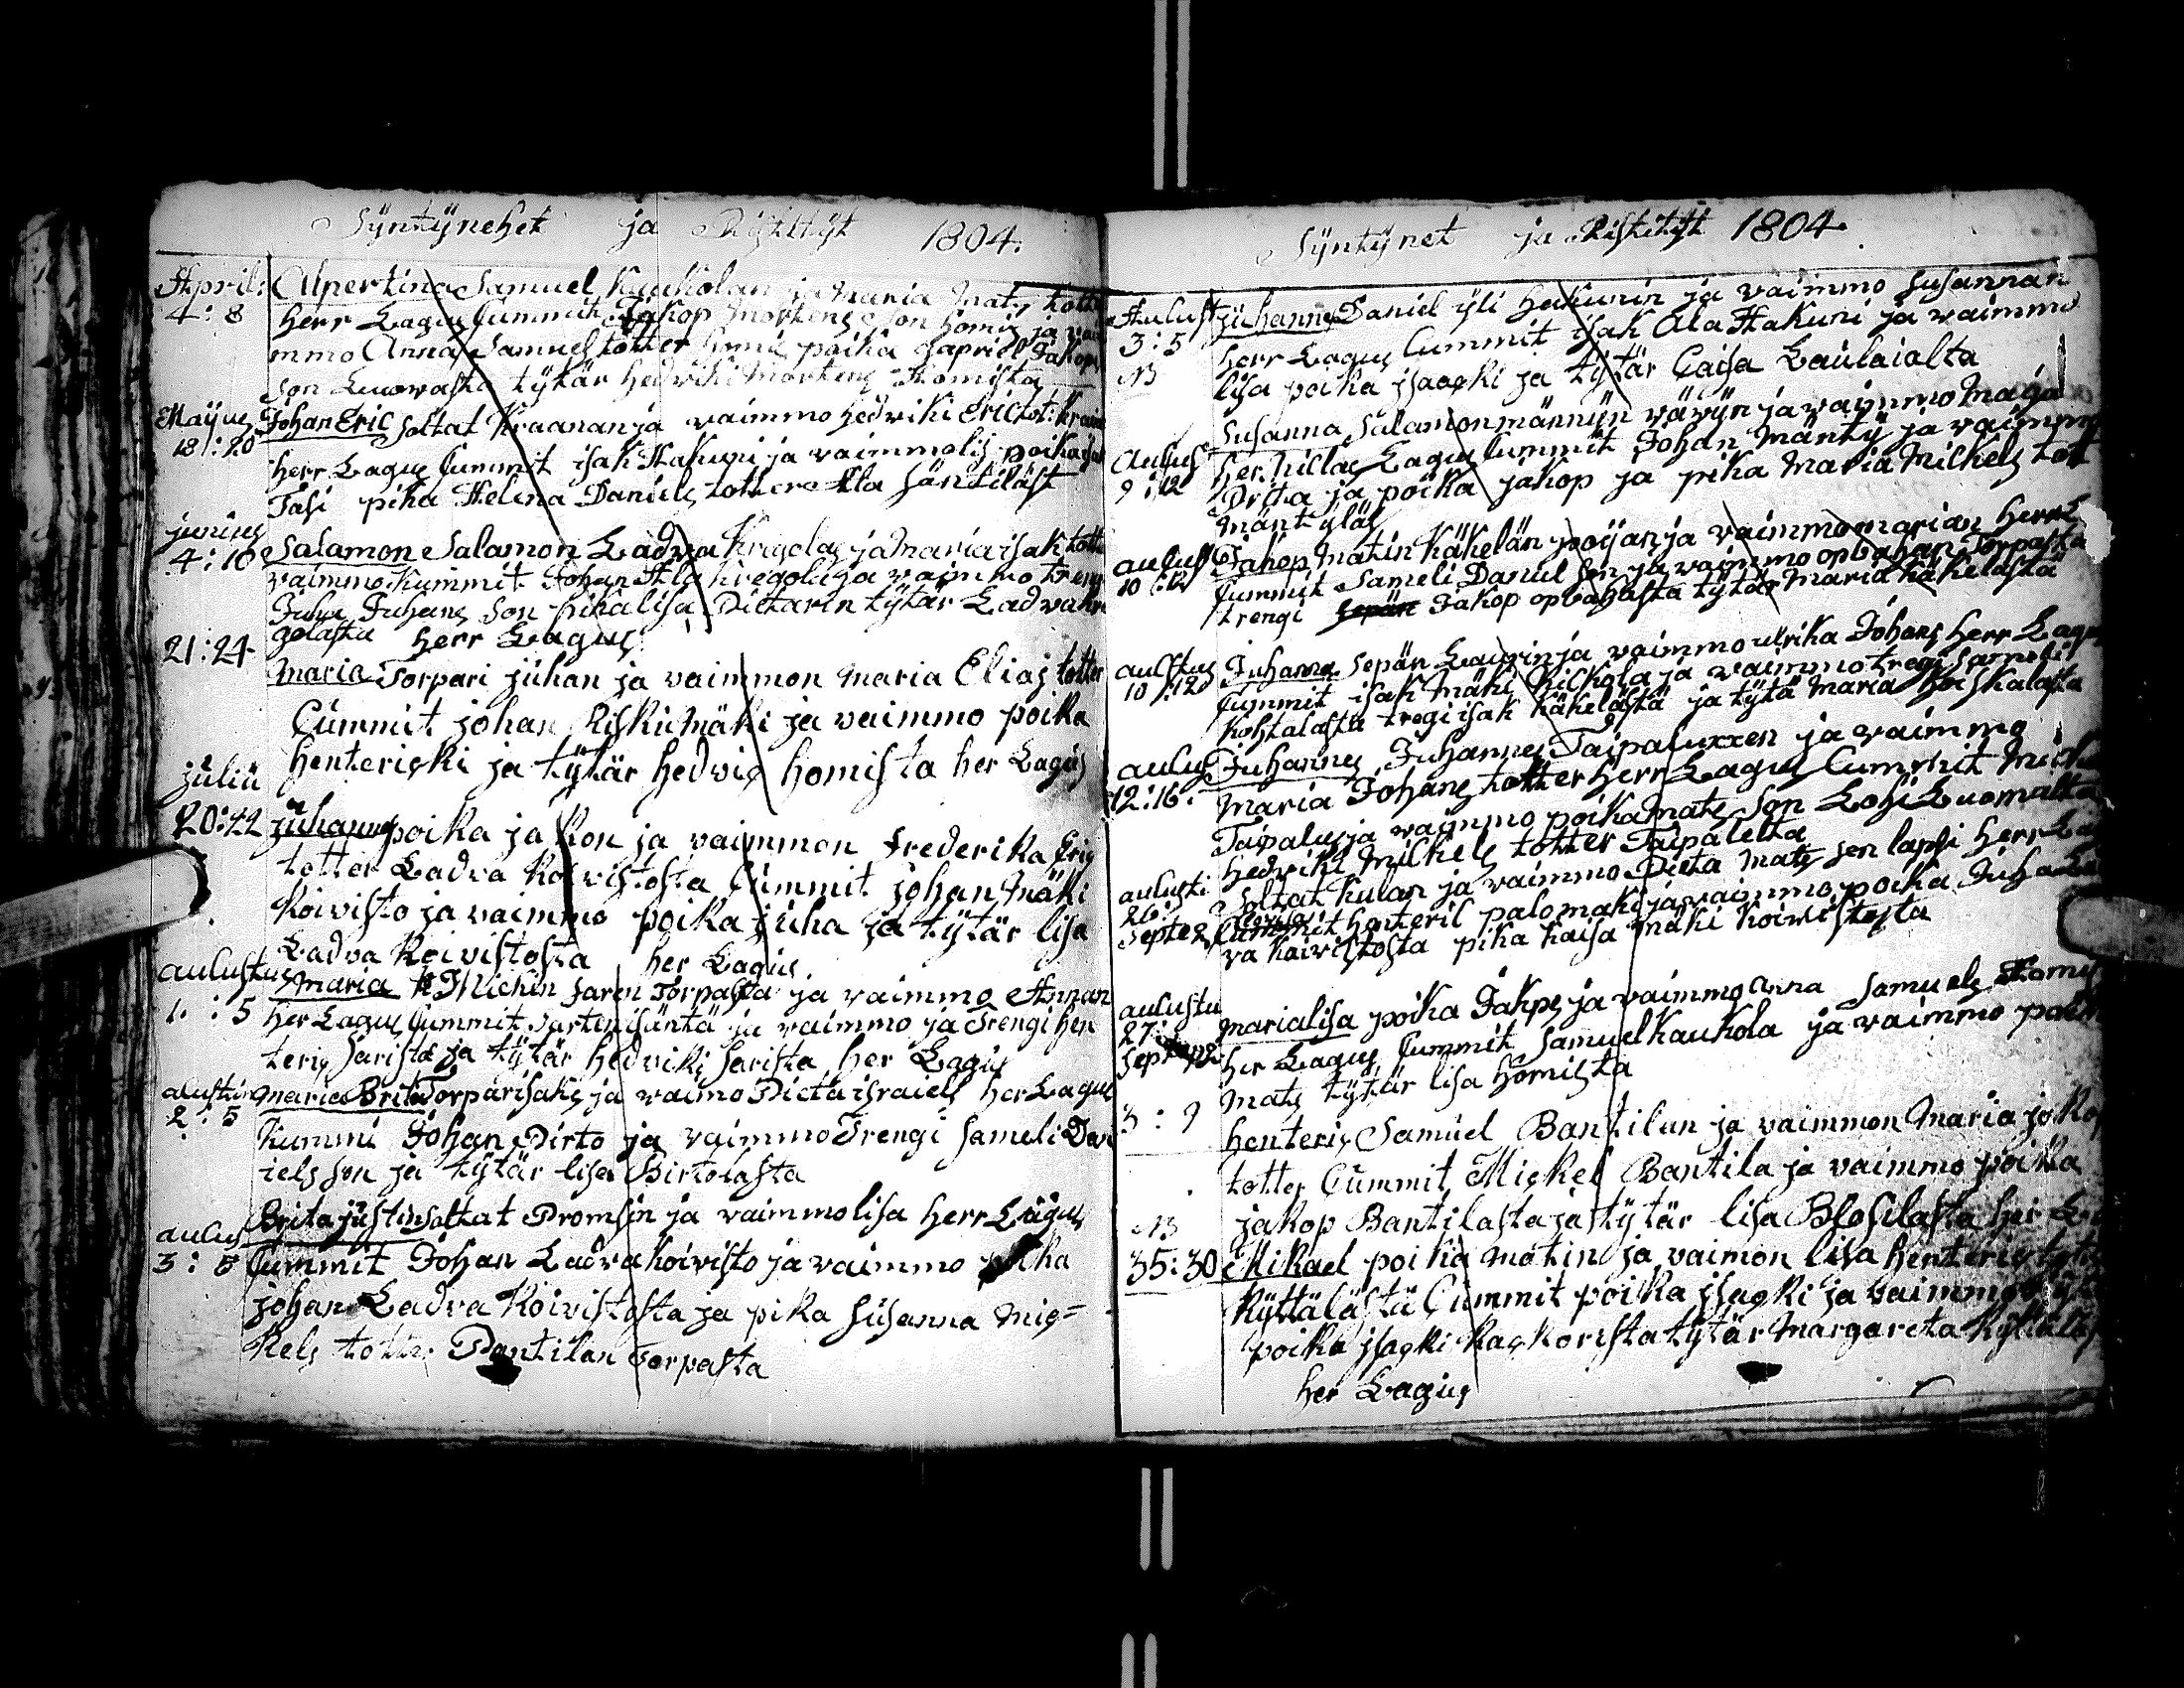 Syntynehet ja Ristityt 1804.
April: Alpertina Samuel Kaukolan ja Maria Mats totte
4:8 herr Lagus Cummit Jakop Mortens son homis ja vai
mmo Anna Samuels totter homis poika Gapriel Jakops
son Luowasta tytär hedviki Mortens Homista
Mayus Johan Eric soltat Kraanan ja vaimmo hedviki Erictot: Kraan
18:20 herr Lagus Cummit isak Hakuni ja vaimmo lis poika
Tasi pika Helena Daniels totter Ala säntiläst
junius
4:10 Salamon Salamon Ladva Kregolas ja Maria isak totte
vaimmo: Kummit Johan Ala Kregola ja vaimmo treng
Juha Juhans son pika lisa Dictarin tytär Ladva kre
golasta herr Lagus
21:24 Maria Torpari juhan ja vaimmon Maria Elias totter
Cummit johan Riskumäki ja vaimmo poika
henteriski ja tytär hedvig homista her Lagus
juliu
20:22 juhannes poika jakon ja vaimmon Frederika Eris
totter Ladva Koivistosta Cummit johan Mäki
Koivisto ja vaimmo poika juha ja tytär lisa
Ladva Koivistosta her Lagus
aulustus Maria Michin saren Torpasta ja vaimmo Annan
1:5 her Lagus Cummit Sarten isäntä ja vaimmo ja Trengi hen
teris sarista ja tytär hedvikis sarista her Lagus
austus Maria Brita Torpar isaks ja vaimo Pieta israels her Lagus
2:5 Kummi Johan Pirto ja vaimmo Trengi Sameli Dan
iels son ja tytär lisa Birtolasta
aulus Brita justin soltat Promsin ja vaimmo lisa herr Lagus
3:5 Cummit Johan Ladva koivisto ja vaimmo poika
johan Ladva Koivistosta ja pika susanna Mis=
kels totter Pantilan Torpasta
Syntynet ja Ristityt 1804.
Aulust juhannes Daniel yli hakunin ja vaimmo Susannan
3:5 herr Lagus Cummit isak Ala Hakuni ja vaimmo
NB lisa poika isaaski ja tytär Caisa Laulaialta
Susanna Salamon männyn vävyn ja vaimmo Maga
Aulust her. Nicklas Lagus Cummit Johan Mänty ja vaimm
9:12 Brita ja poika jakop ja pika Maria Mickels tot
Mäntyläs
aulust Jakop Matin Käkelän poijan ja vaimmo marian herr L
10:12 Cummit Sameli Daniel son ja vaimmo Torpasta
trengi Jakop tytär Maria Käkelästä
aulstus Juhanna sepän Laurin ja vaimmo ulrika Johans herr Lagus
10:12 Cummit isak Mäki ja vaimmo tregi sameli
Kohtalasta tregi isak Käkelästä ja tytä Maria Koiskalasta
aulus Juhannes Juhannes Taipaluxxen ja vaimmo
12:16. Maria Johans totter herr Lagus Cummit Mick
Taipalus ja vaimmo poika Mats son Lohi Luomalta
hedviki Mickels totter Taipalelta
aulusti soltat Kulan ja vaimmo Pieta Mats son lapsi herr La
26: Cummit henteril palomaki ja vaimmo poika Juha La
Septe 2 va koivistosta pika kaisa mäki koivistosta
aulustu
27: Marialisa poika Jakps ja vaimmo Anna Samuels Homis
Sept 2 her Lagus Cummit Samuel Kaukola ja vaimmo poik
Mats tytär lisa homista
3:9 henteris Samuel Bantilan ja vaimmon Maria jakop
totter Cummit Mickel Bantila ja vaimmo poika
NB jakop Bantilasta ja tytär lisa Blosilasta her La
35:30 Mikael poika matin ja vaimon lisa henteris tott
Kyttälästä Cummit poika jsaski ja vaimmo
poika jsaski Kaskorista tytär Margareta Kyttäläs
her Lagus